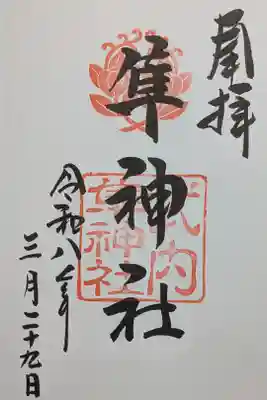 奉拝
隼神社
式内
隼神社
令和八年
三月二十九日